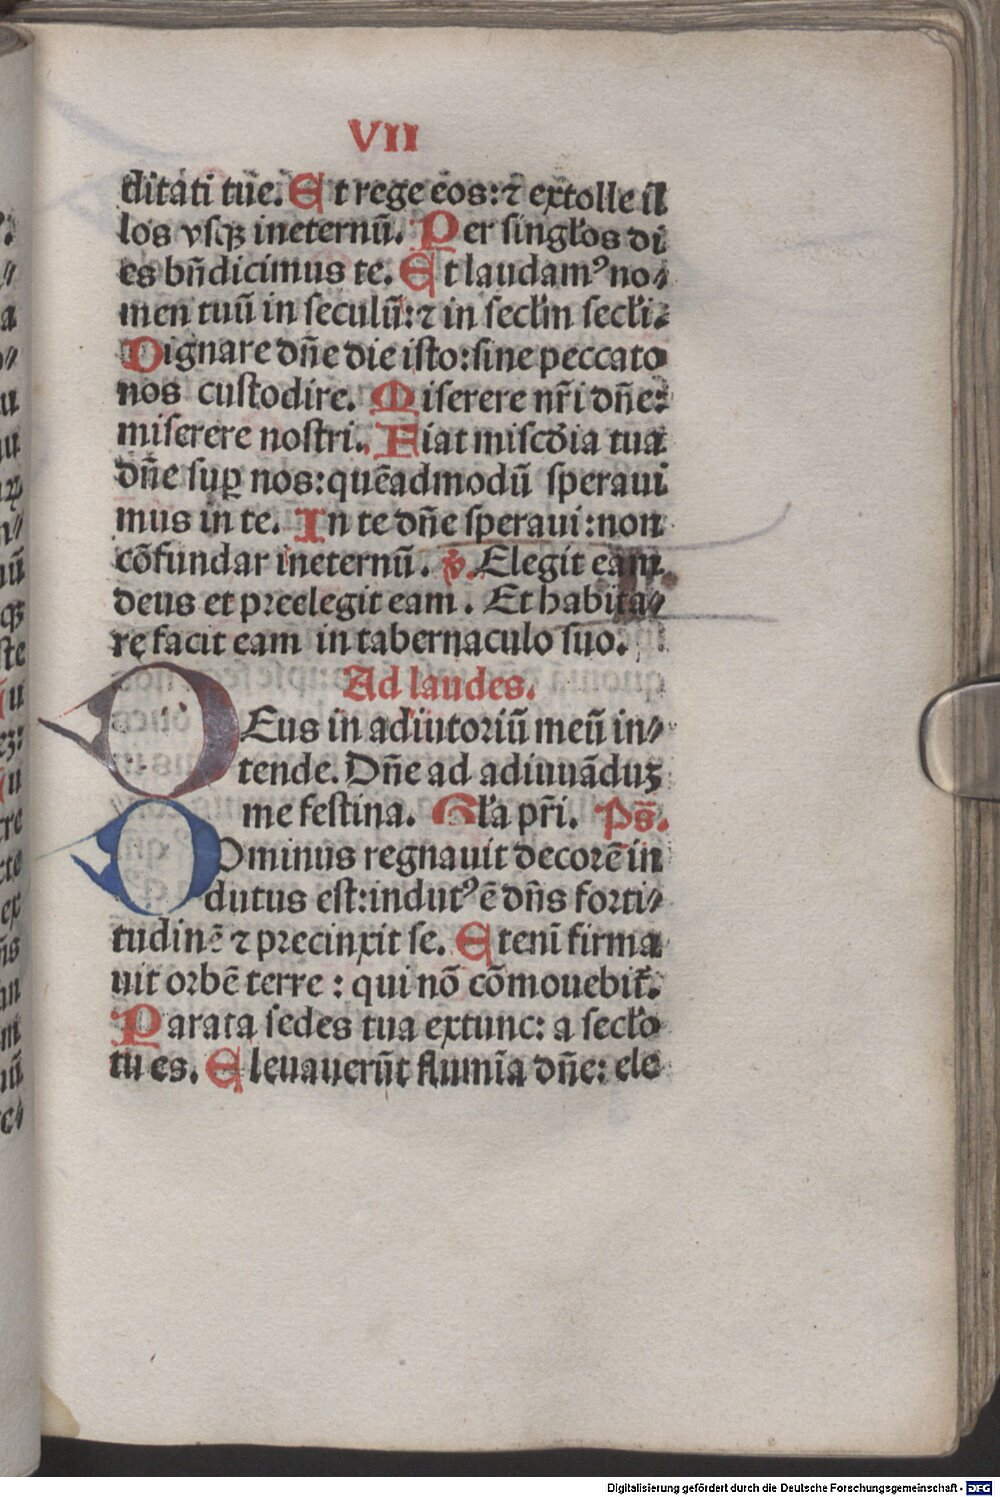 VII
ditati tue. Et rege eos: ⁊ extolle il
los vsqꝫ ineternū. Per singłos di
es bn̄dicimus te. Et laudamꝰ no⸗
men tuū in seculū: ⁊ in secłm secłi.
Dignare dn̄e die isto: sine peccato
nos custodire. Miserere nr̄i dn̄e:
miserere nostri. Fiat miscd̄ia tua
dn̄e suꝑ nos: quēadmodū speraui
mus in te. In te dn̄e speraui: non
cōfundar ineternū. ℣. Elegit eam
deus et preelegit eam. Et habita⸗
re facit eam in tabernaculo suo.
Ad laudes.
DEus in adiutoriū meū in⸗
tende. Dn̄e ad adiuuāduꝫ
me festina. Gła pr̄i. Ps̄.
DOminus regnauit decorē in
dutus est: indutꝰ ē dn̄s forti⸗
tudinē ⁊ precinxit se. Etenī firma
uit orbē terre: qui nō cōmouebit̄.
Parata sedes tua extunc: a secło
tu es. Eleuauerūt flumīa dn̄e: ele
Digitalisierung gefördert durch die Deutsche Forschungsgemeinschaft - DFG